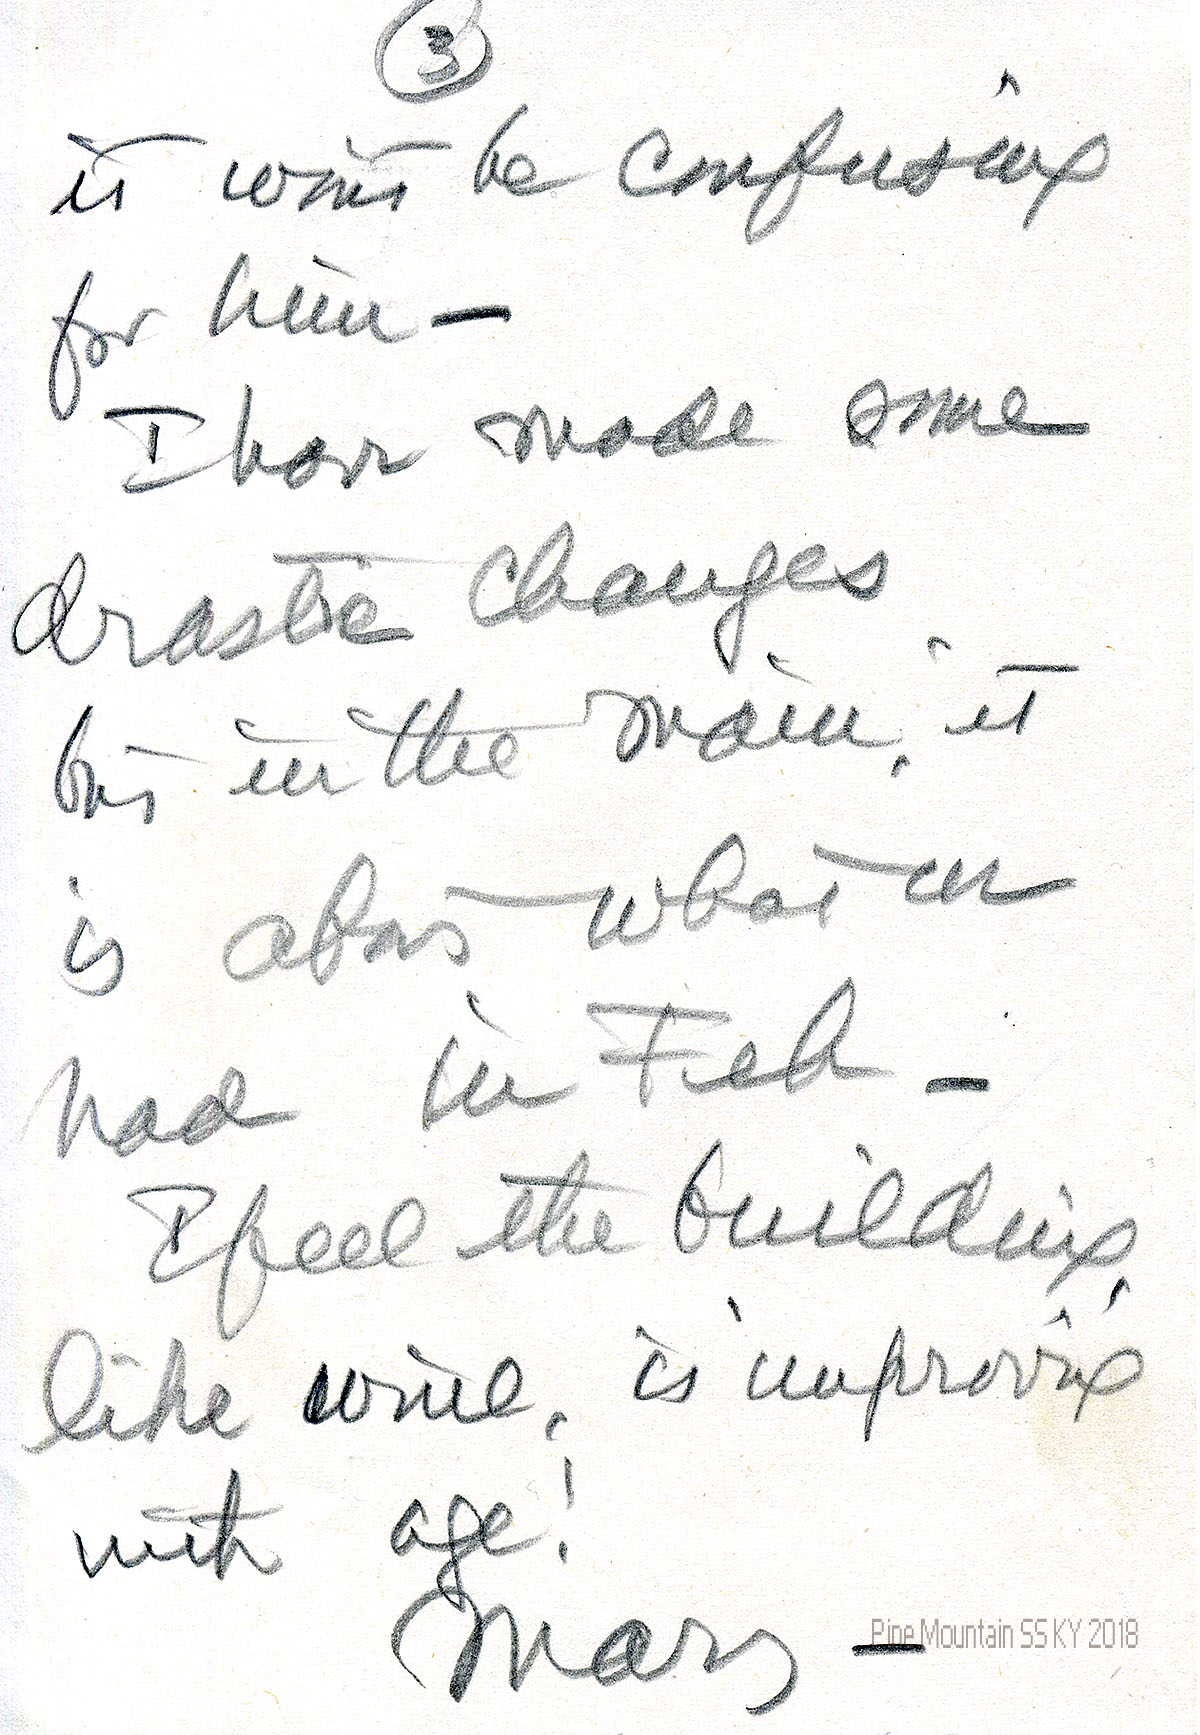 3
it won't be confusing
for him —
I have made some
drastic changes
but in the main, it
is about what we
had in Feb —
I feel the building,
like wine, is improving
with age!
Mary —
Pine Mountain SS KY 2018